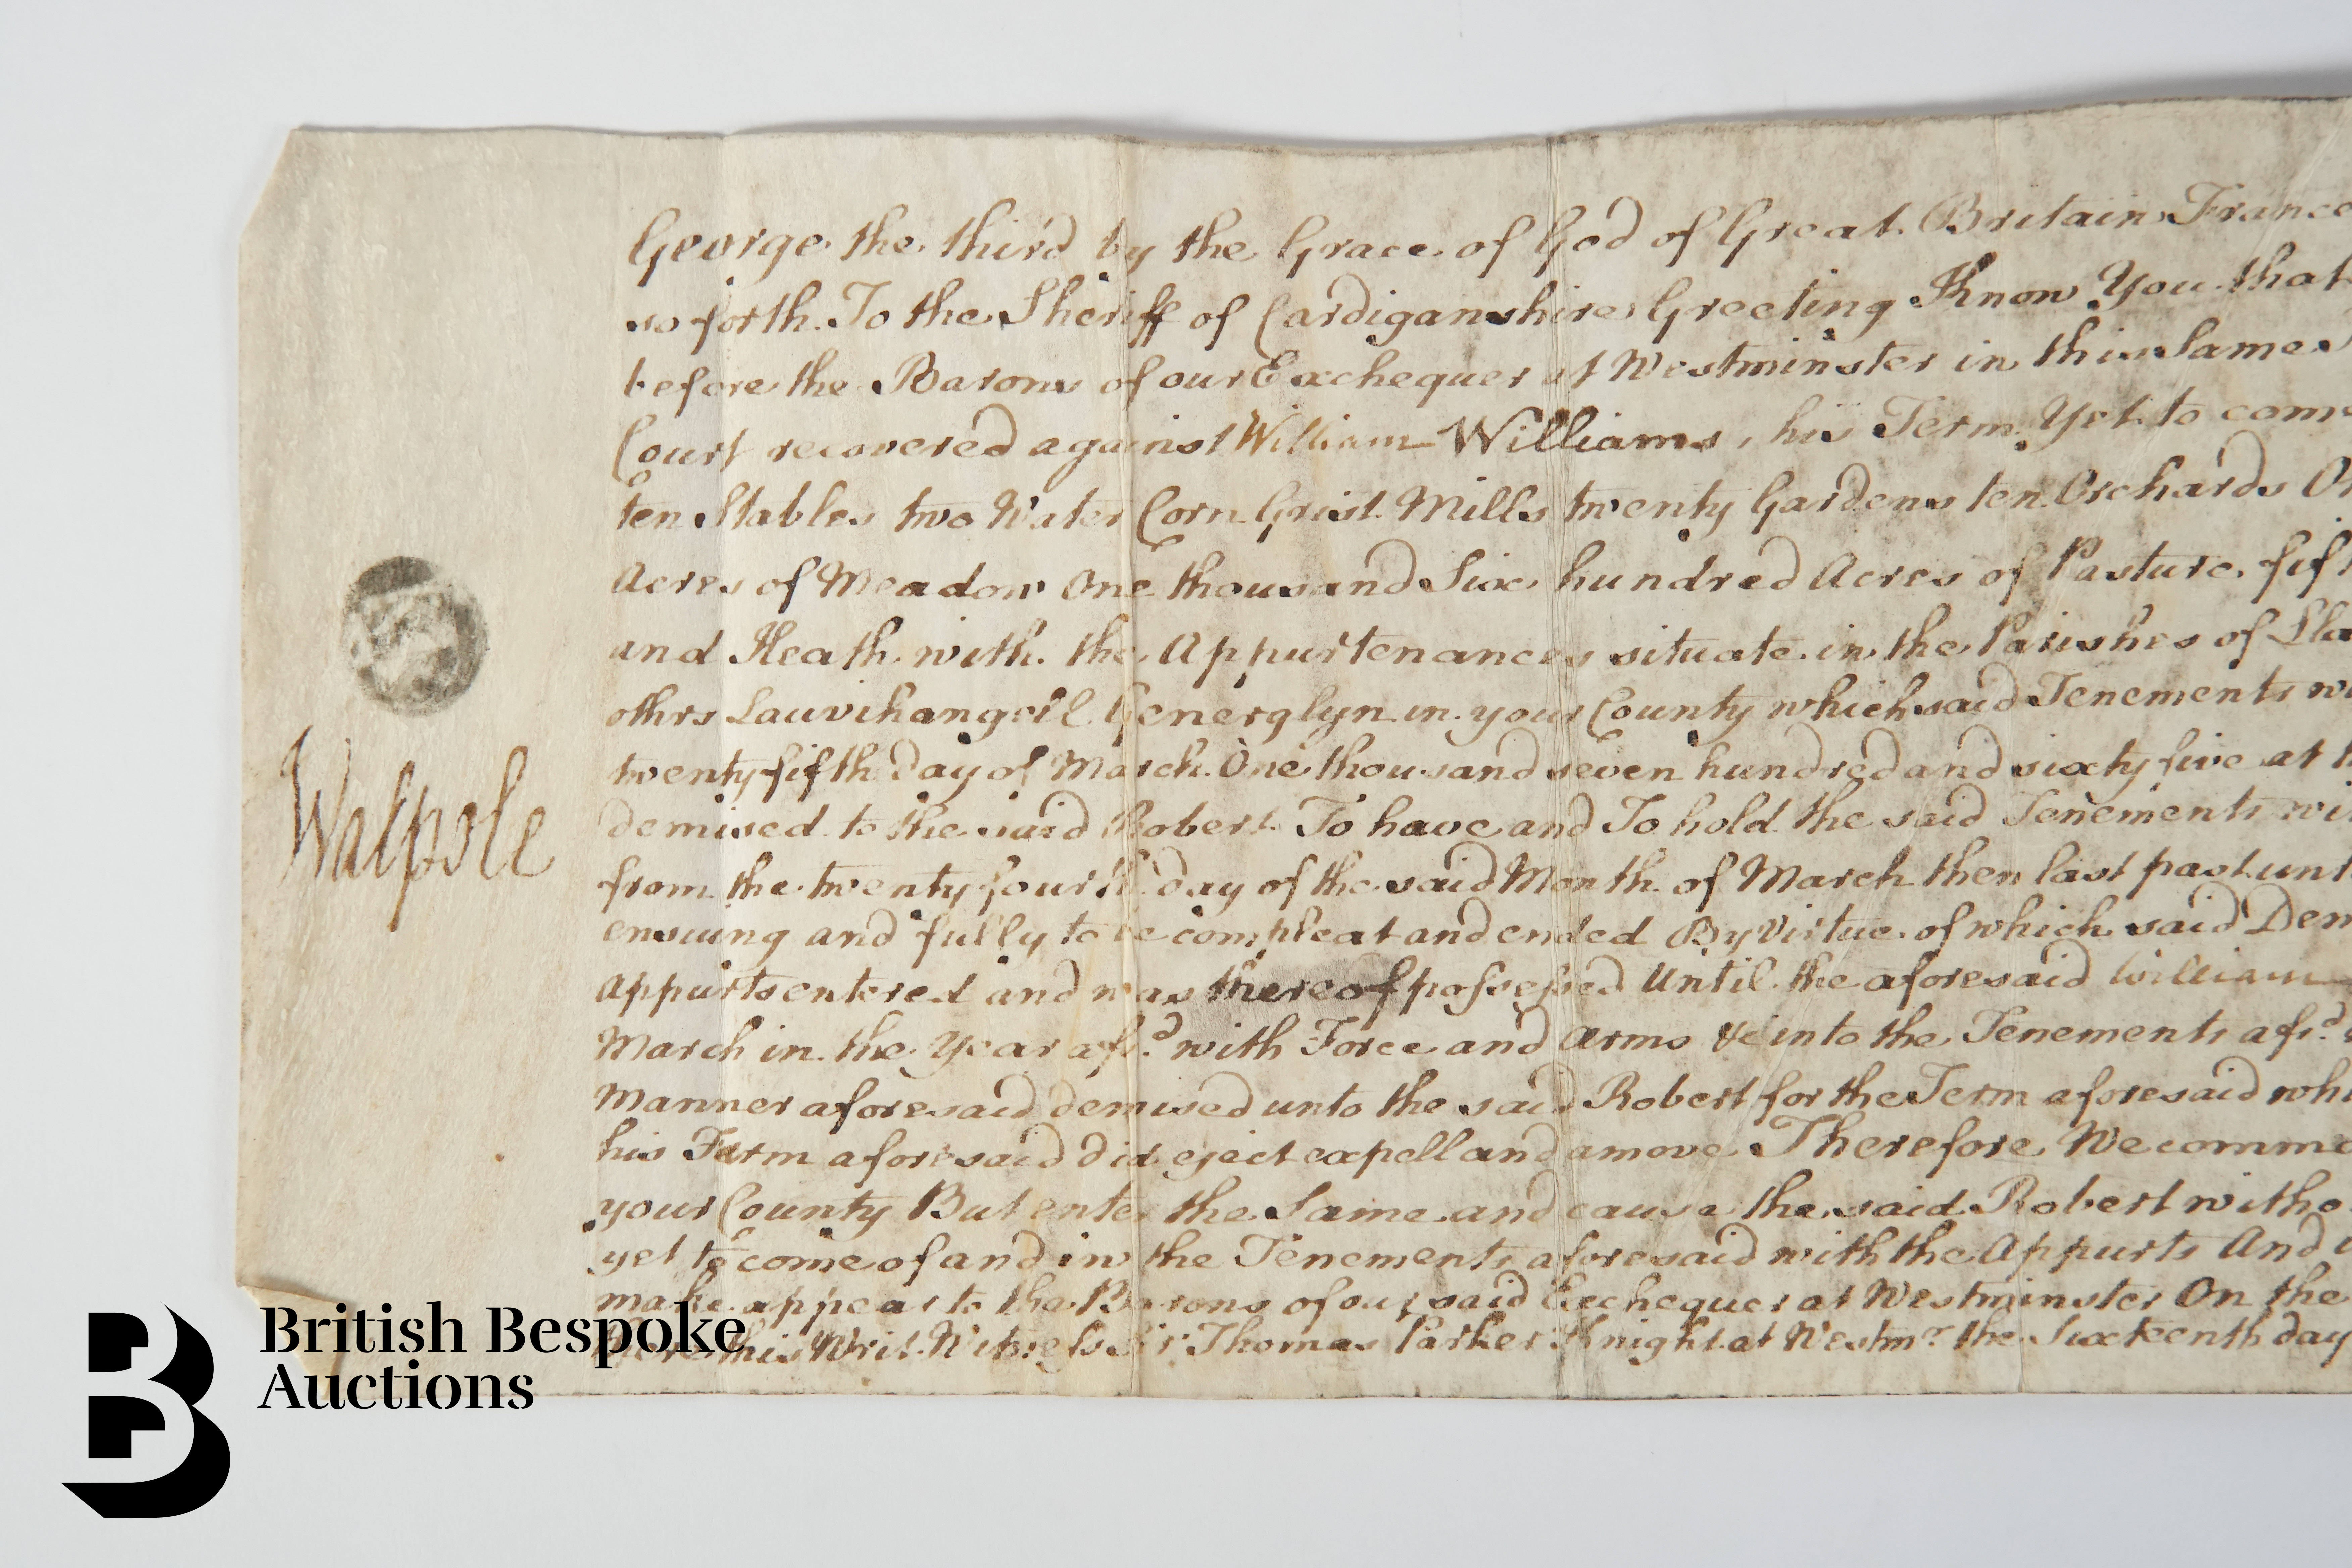 George the third by the Grace of God of Great Britain France
so forth. To the Sheriff of Cardiganshire Greeting Know You that
before the Barons of our Exchequer at Westminster in this Same
Court recovered against William Williams, his Term Yet to come
ten Stables two Water Corn Grist Mills twenty Gardens ten Orchards
Acres of Meadow One thousand Six hundred Acres of Pasture
and Heath with the Appurtenances situate in the Parishes of
othrs Lauvihangeil Generglyn in your County which said Tenements
twenty fifth day of March One thousand seven hundred and sixty five at
demised to the said Robert To have and To hold the said Tenements
from the twenty fourth day of the said Month of March then last past
ensuing and fully to be compleat and ended By Virtue of which said
Appurts entered and was thereof possessed Until the aforesaid William
March in the Year afsd with Force and Arms &c into the Tenements afsd
Manner aforesaid demised unto the said Robert for the Term aforesaid
his Farm aforesaid did eject expell and amove Therefore We
your County But enter the Same and cause the said Robert
yet to come of and in the Tenements aforesaid with the Appurts And
make appear to the Barons of our said Exchequer at Westminster On the
this Writ Witness Sir Thomas Parker Knight at Westmr the Sixteenth day
Walpole
British Bespoke
Auctions